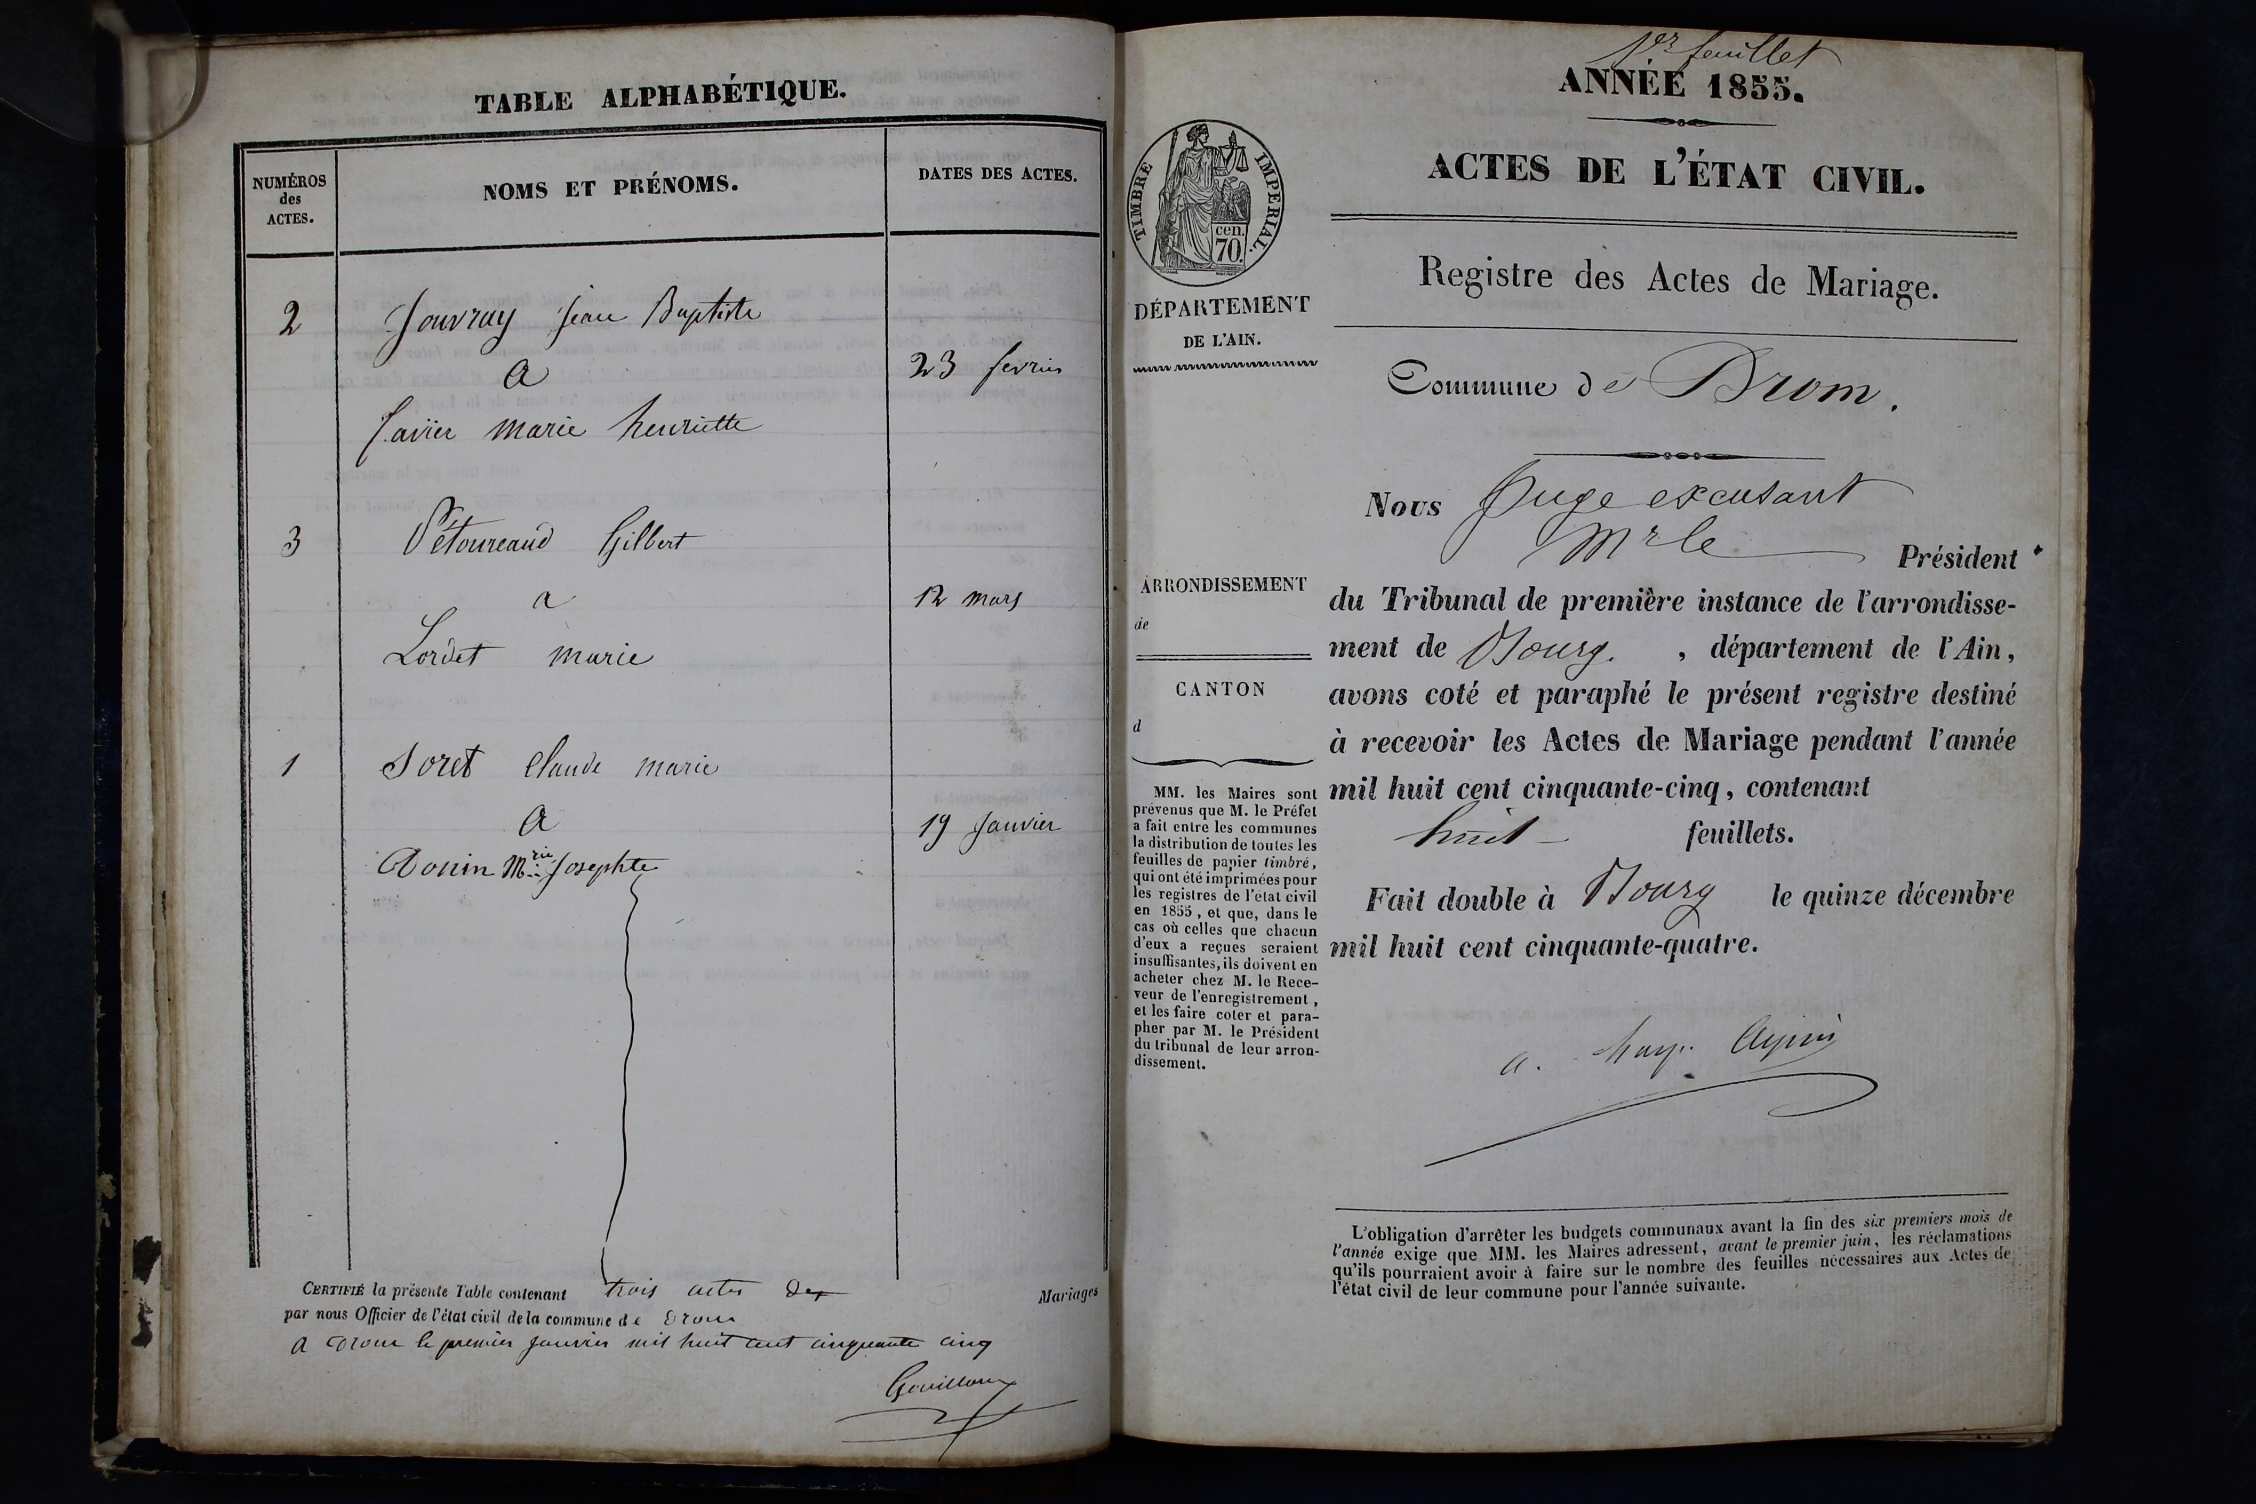 TABLE ALPHABÉTIQUE.
NUMÉROS
des
ACTES.
NOMS ET PRÉNOMS.
DATES DES ACTES.
2
Jouvray Jean Baptiste
a
23 fevrier
Javier marie henriette
3
Pétoureaud Gilbert
a
12 mars
Lordet marie
1
Soret Claude marie
a
19 Janvier
Mrie Josephte
CERTIFIÉ la présente Table contenant trois actes de Mariages
par nous Officier de l'état civil de la commune de Drom
A Drom le premier Janvier mil huit cent cinquante cinq
1er feuillet
ANNÉE 1855.
ACTES DE L'ÉTAT CIVIL.
TIMBRE IMPERIAL.
cen.
70.
DÉPARTEMENT
DE L'AIN.
Registre des Actes de Mariage.
Commune de Drom.
Nous Juge excusant
Mr le Président
ARRONDISSEMENT
de
CANTON
d
du Tribunal de première instance de l'arrondisse-
ment de Bourg. , département de l'Ain,
avons coté et paraphé le présent registre destiné
à recevoir les Actes de Mariage pendant l'année
mil huit cent cinquante-cinq, contenant
huit feuillets.
Fait double à Bourg le quinze décembre
mil huit cent cinquante-quatre.
MM. les Maires sont
prévenus que M. le Préfet
a fait entre les communes
la distribution de toutes les
feuilles de papier timbré,
qui ont été imprimées pour
les registres de l'état civil
en 1855, et que, dans le
cas où celles que chacun
d'eux a reçues seraient
insuffisantes, ils doivent en
acheter chez M. le Rece-
veur de l'enregistrement,
et les faire coter et para-
pher par M. le Président
du tribunal de leur arron-
dissement.
L'obligation d'arrêter les budgets communaux avant la fin des six premiers mois de
l'année exige que MM. les Maires adressent, avant le premier juin, les réclamations
qu'ils pourraient avoir à faire sur le nombre des feuilles nécessaires aux Actes de
l'état civil de leur commune pour l'année suivante.